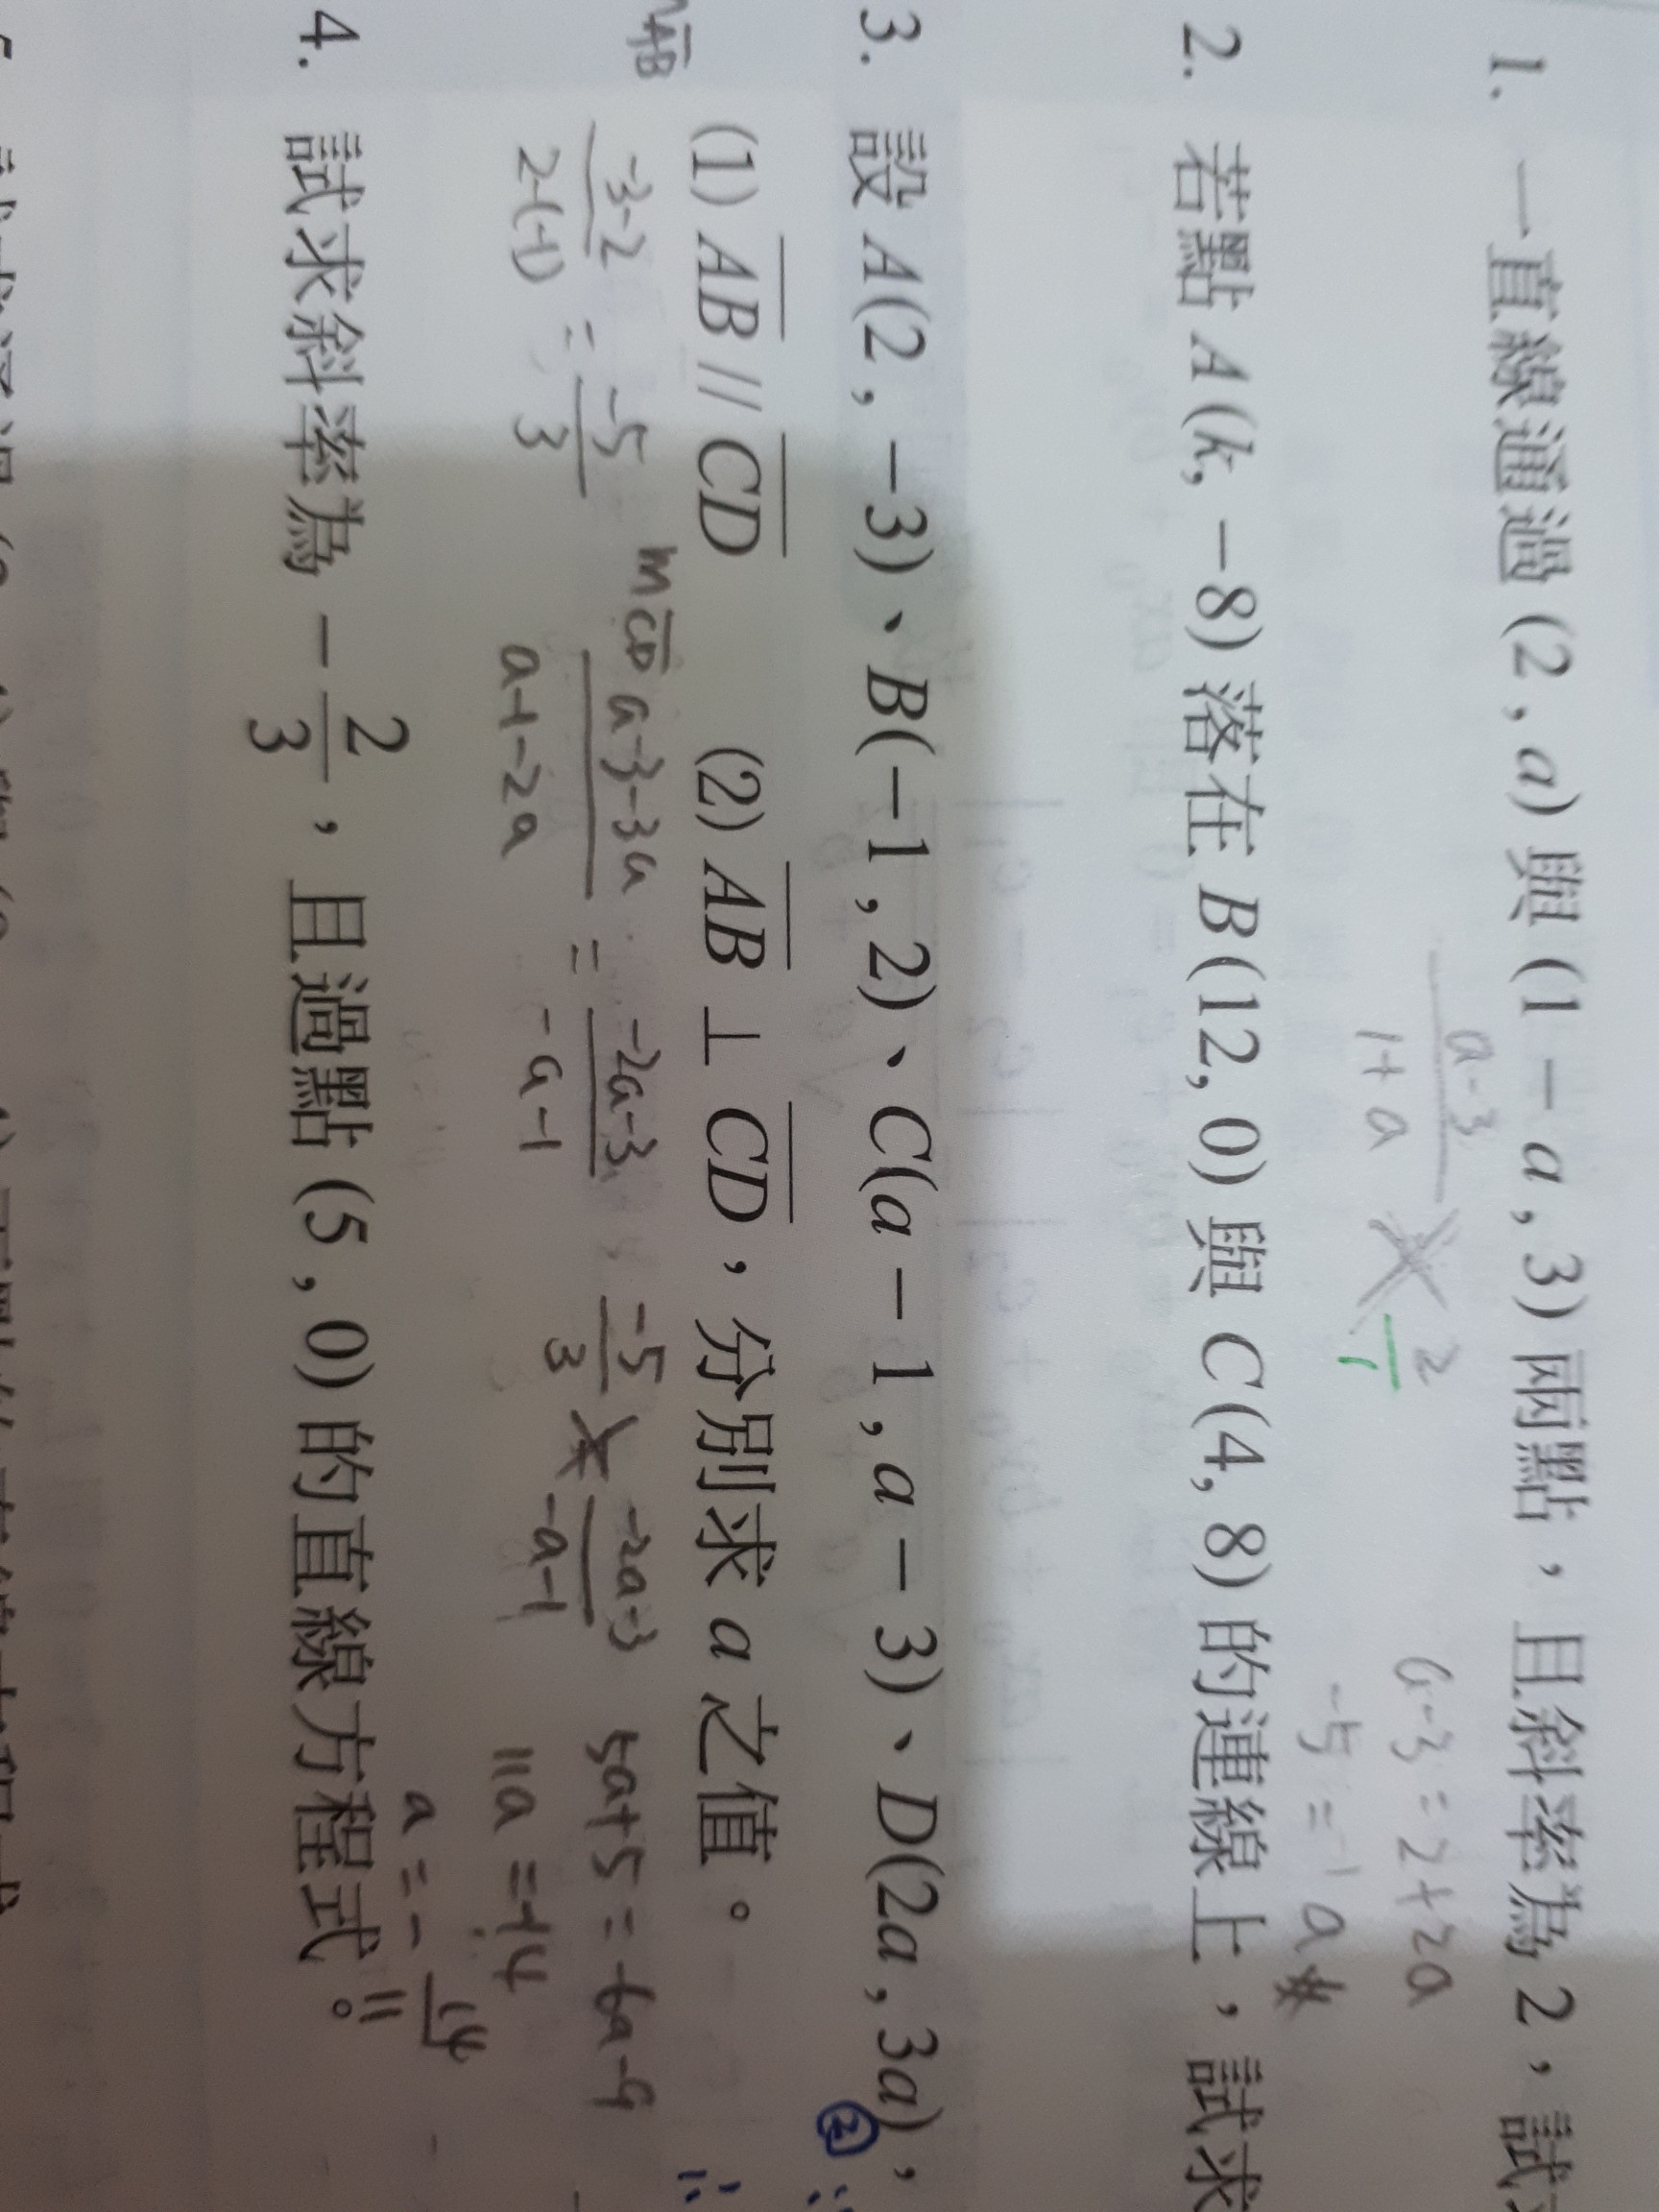 1. 一直線通過 (2 , a) 與 (1 − a , 3) 兩點，且斜率為 2，試
a-3
1+a
2
1
a-3 = 2+2a
-5 = a
2. 若點 A(k, −8) 落在 B(12, 0) 與 C(4, 8) 的連線上，試求
3. 設 A(2 , −3)、B(−1 , 2)、C(a − 1 , a − 3)、D(2a , 3a)，
②
(1) AB // CD (2) AB ⊥ CD，分別求 a 之值。
mAB -3-2 / 2-(-1) = -5 / 3 mCD a-3-3a / a-1-2a = -2a-3 / -a-1
-5 / 3 -2a-3 / -a-1 5a+5 = -6a-9
11a = -14
a = - 14 / 11
4. 試求斜率為 − 2/3，且過點 (5 , 0) 的直線方程式。